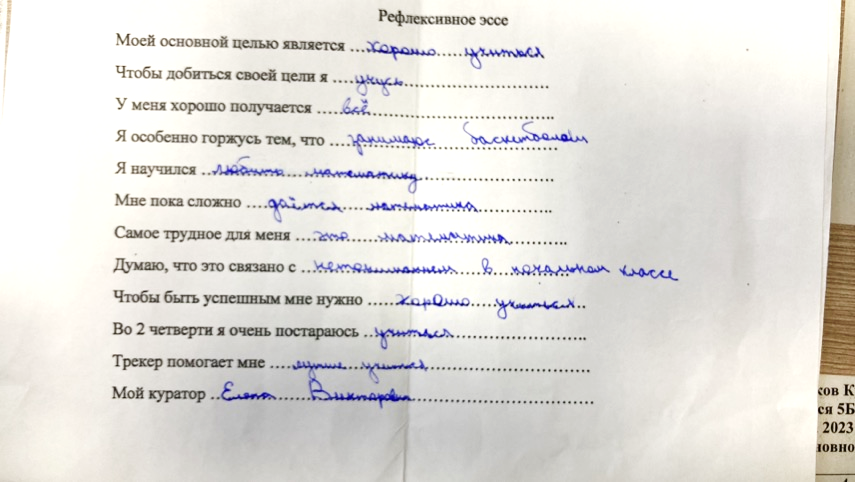 Рефлексивное эссе
Моей основной целью является ...хорошо.....учиться
Чтобы добиться своей цели я ....учусь.........................
У меня хорошо получается ....всё....................................
Я особенно горжусь тем, что ....занимаюс баскетболом
Я научился ..любить...математику.........................
Мне пока сложно ....даётся.....математика..............
Самое трудное для меня ....это.....математика..........
Думаю, что это связано с ...непониманием...в начальном классе
Чтобы быть успешным мне нужно ......хорошо....учиться..
Во 2 четверти я очень постараюсь ..учиться.......................
Трекер помогает мне ....лучше..учиться............................
Мой куратор ..Елена.......Викторовн................................
ков К
ся 5Б
2023
новно